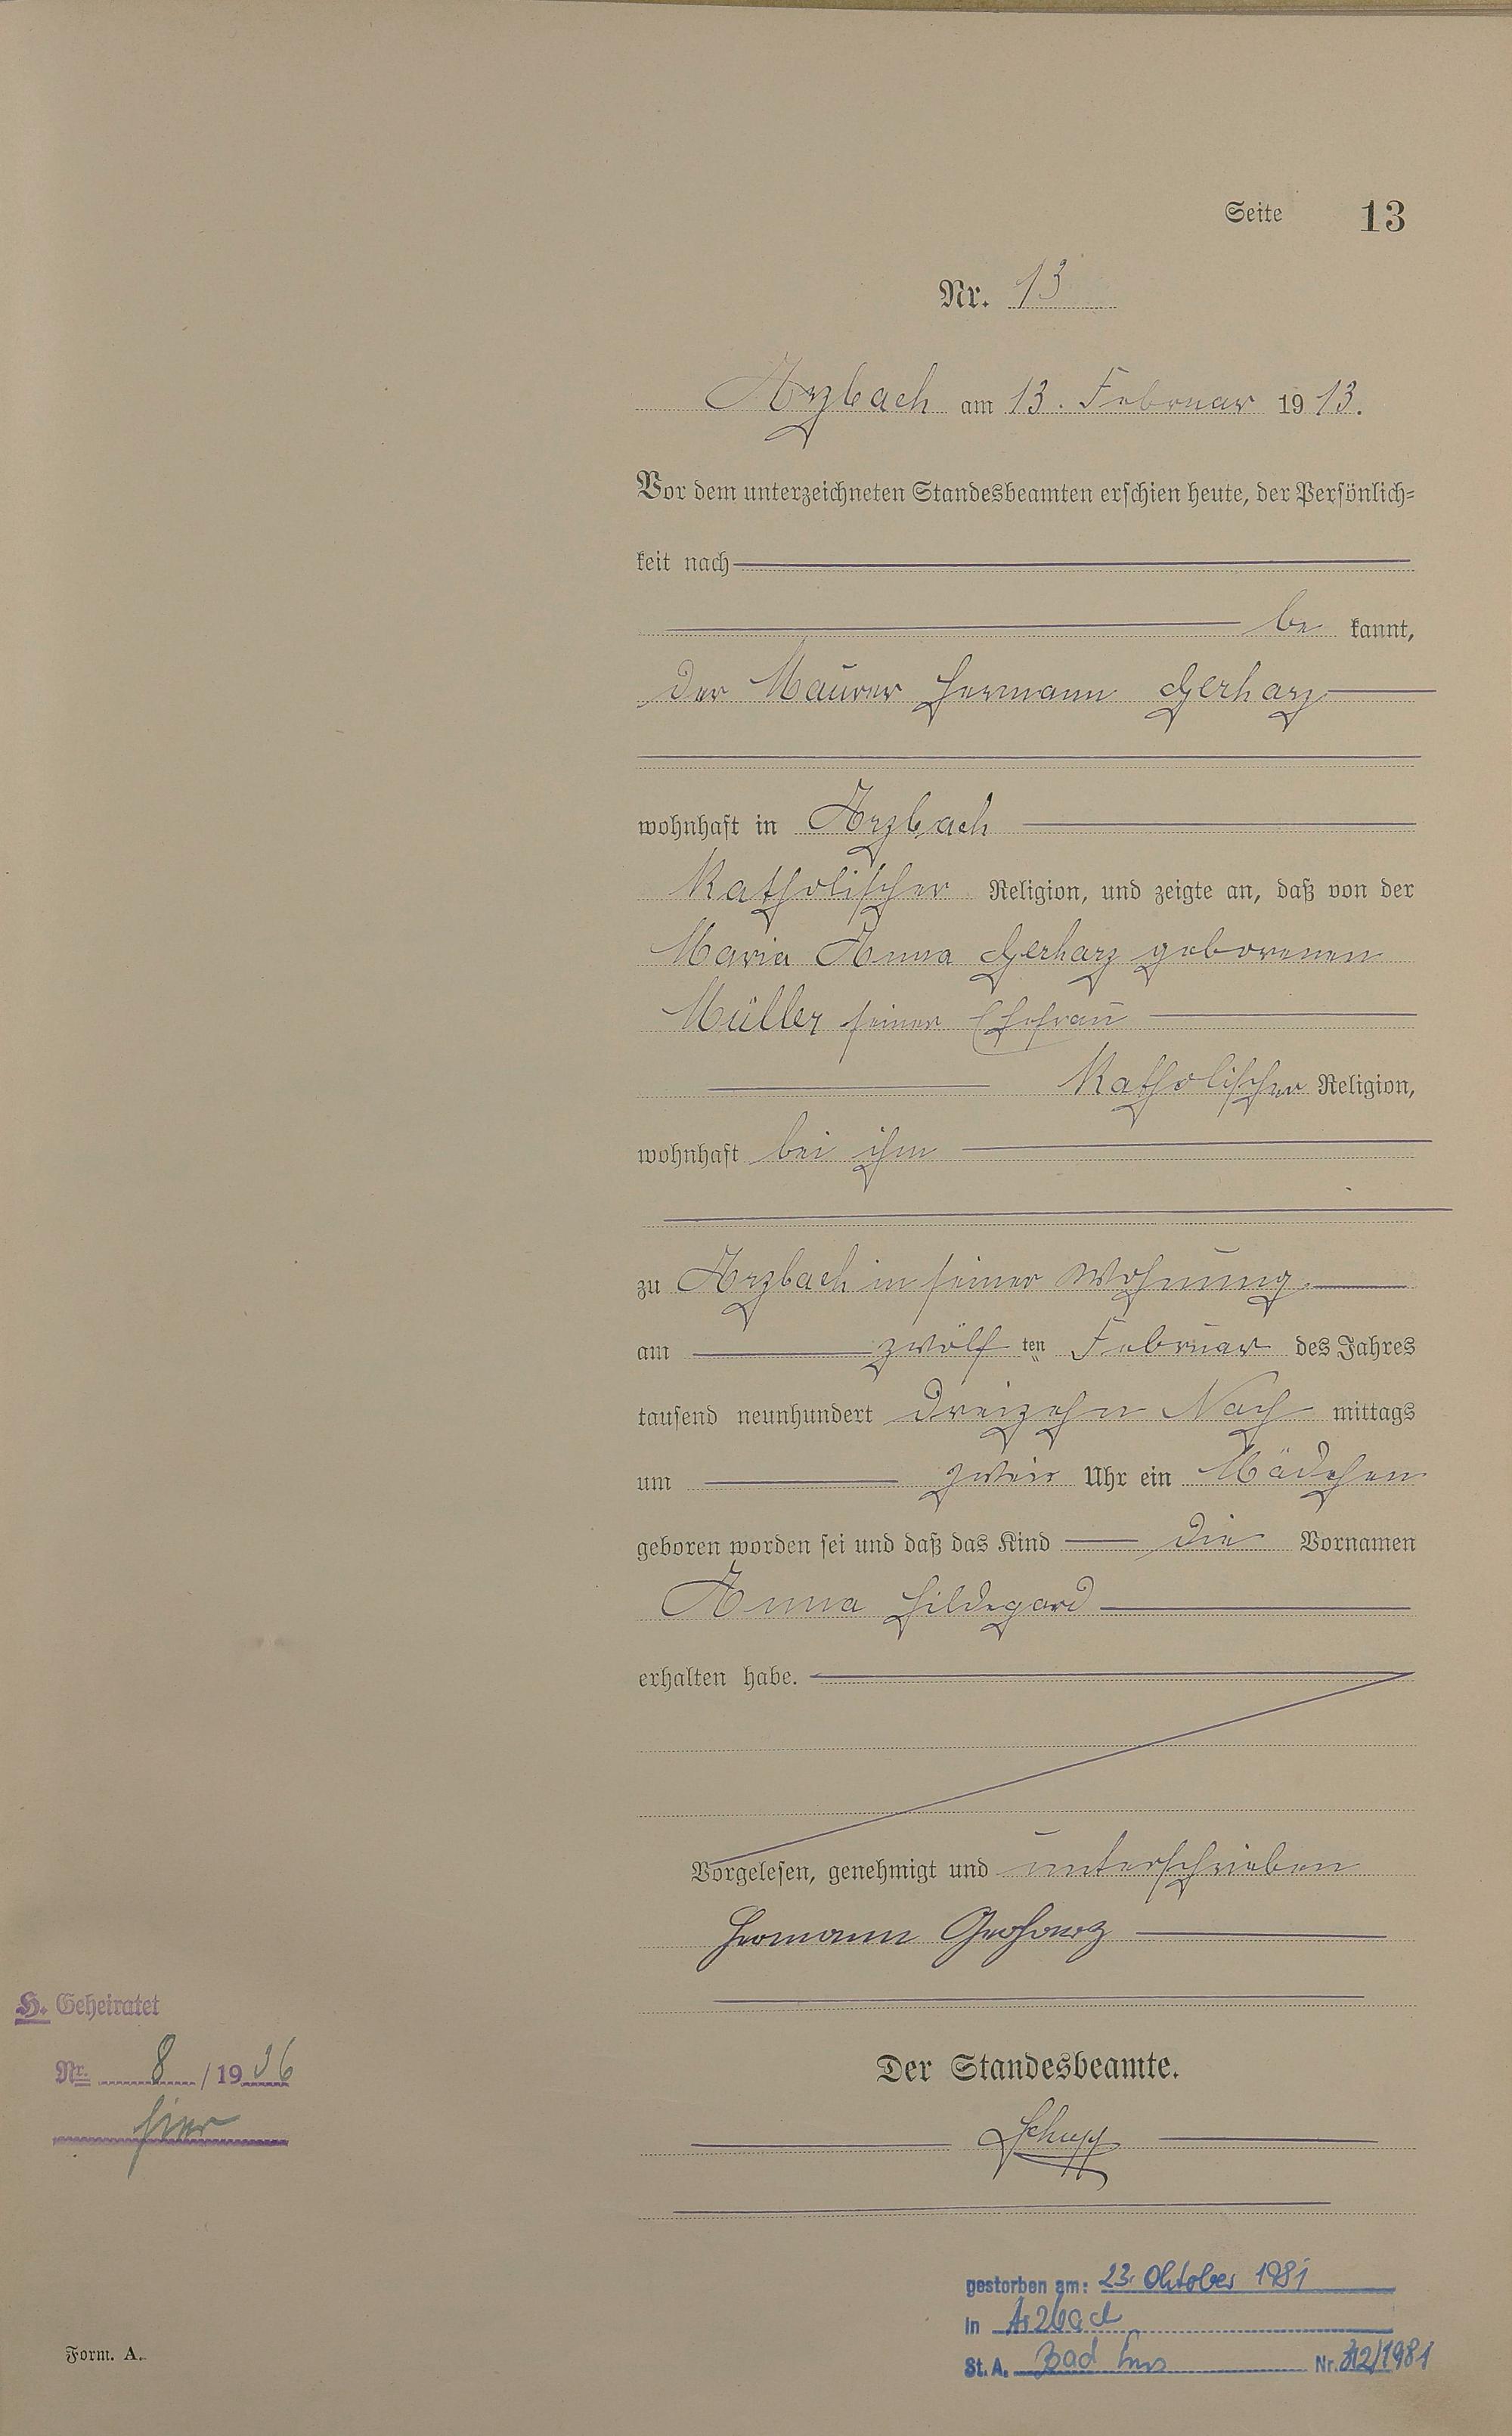 Seite 13
Nr. 13
Arzbach am 13. Februar 1913.
Vor dem unterzeichneten Standesbeamten erschien heute, der Persönlich=
keit nach
be kannt,
der Maurer Hermann Gerharz
wohnhaft in Arzbach
Katholischer Religion, und zeigte an, daß von der
Maria Anna Gerharz geborenen
Müller seiner Ehefrau
Katholischer Religion,
wohnhaft bei ihm
zu Arzbach in seiner Wohnung
am zwölf ten Februar des Jahres
tausend neunhundert dreizehn Nach mittags
um zwei Uhr ein Mädchen
geboren worden sei und daß das Kind die Vornamen
Anna Hildegard
erhalten habe.
Vorgelesen, genehmigt und unterschrieben
Hermann Gerharz
H. Geheiratet
Nr. 8 / 1936
hier
Der Standesbeamte.
Schupp
gestorben am: 23. Oktober 1981
in Arzbach
St. A. Bad Ems Nr. 312/1981
Form. A.